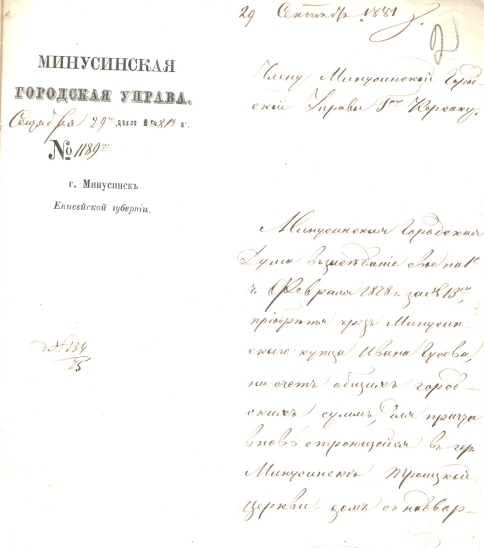 29 Сентябр 1881 г.
МИНУСИНСКАЯ
ГОРОДСКАЯ УПРАВА.
Сентября 29 дня 1881 г.
№ 1189
г. Минусинскъ
Енисейской губерніи.
д № 134
Члену Минусинской Город-
ской Управы Гну
Минусинская Городская
Дума въ засѣданіе свое на 1е
ч Февраля 1878 г. за № 13,
пріобрѣтя чрезъ Минусин-
скаго купца Ивана Гусева,
на счетъ общихъ город-
скихъ суммъ, для причта
вновь строющейся въ гор.
Минусинскѣ Троицкой
церкви домъ съ надвор-